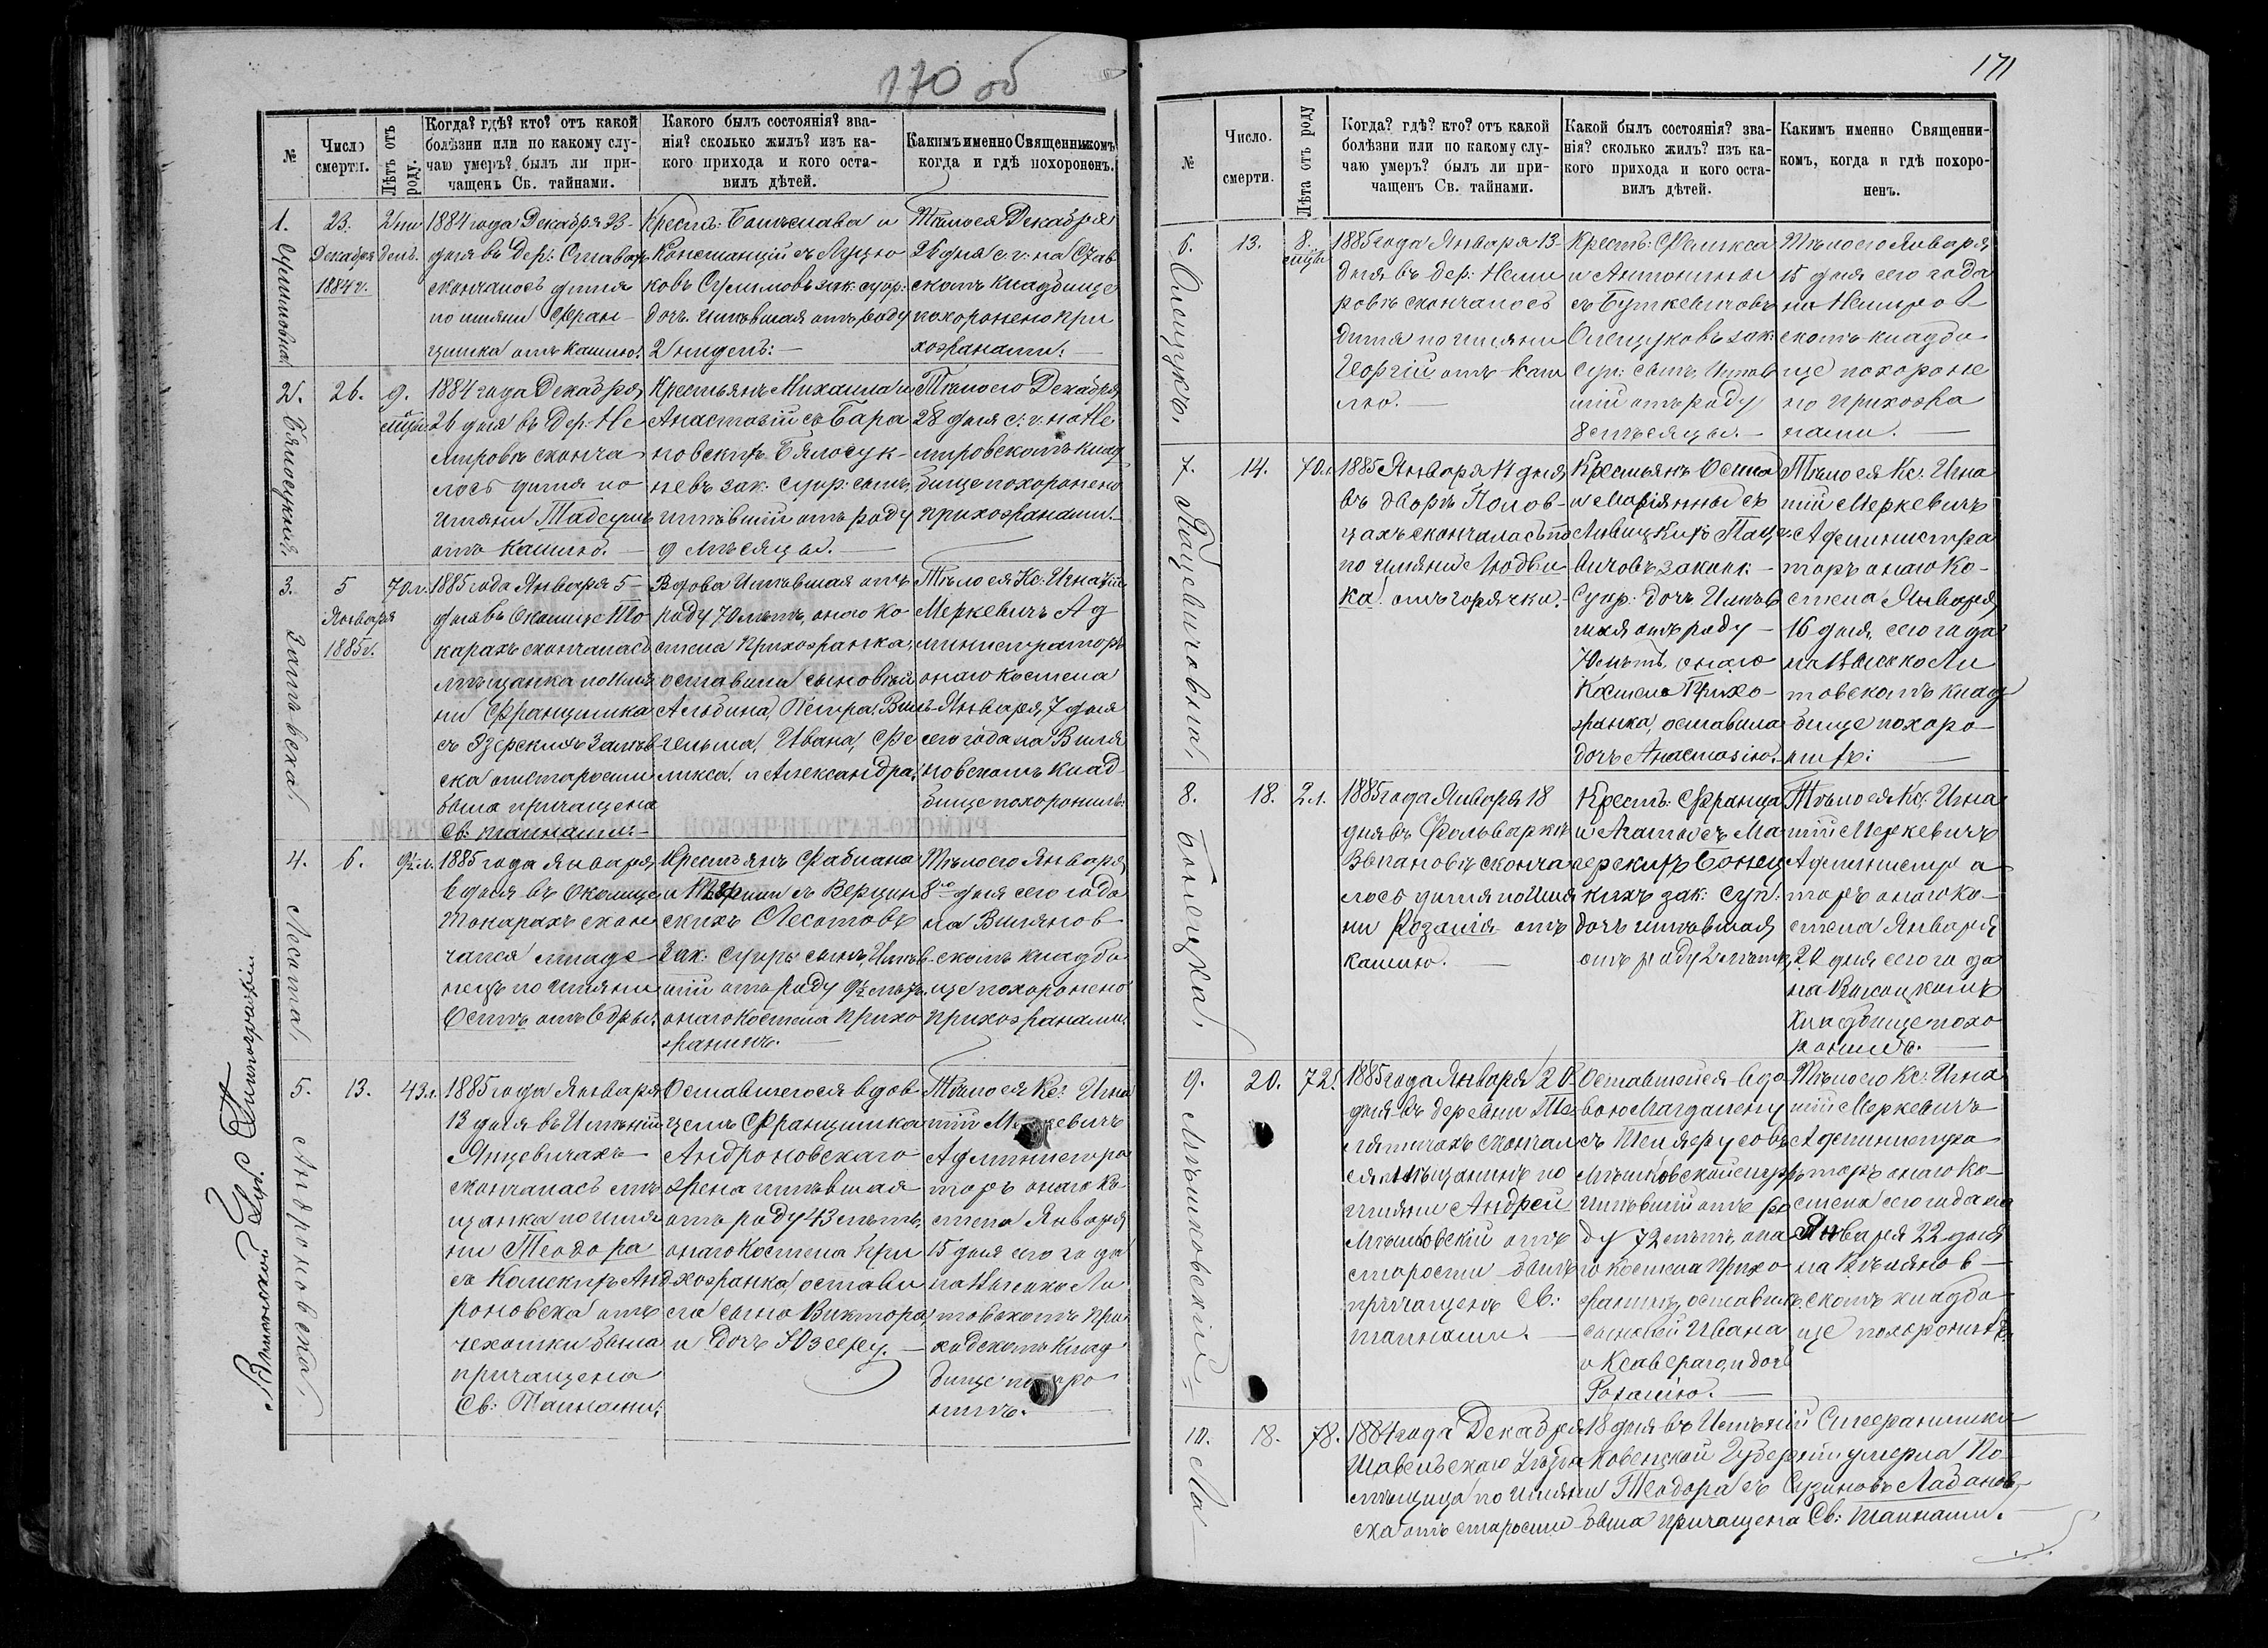 170 об
№
Число смерти.
Лѣтъ отъ роду.
Когда? гдѣ? кто? отъ какой
болѣзни или по какому слу-
чаю умеръ? былъ ли при-
чащенъ Св. тайнами.
Какого былъ состоянія? зва-
нія? сколько жилъ? изъ ка-
кого прихода и кого оста-
вилъ дѣтей.
Какимъ именно Священникомъ
когда и гдѣ похороненъ.
1.
23.
Декабря
1884 г.
1884 года Декабря 23
дня въ дер:
скончалось дитя
по имяни Фран-
цишка отъ кашлю.
Крест:
Констанціи съ
зак: супр:
дочь. имѣвшая отъ роду
2 недел:
Тѣло ея Декабря
26 дня с. г. на
скомъ кладбище
похоронено при
хожанами.
2.
26.
9.
мѣся.
1884 года Декабря
26 дня въ дер: Не
мировкѣ сконча
лось дитя по
имяни Тадеушъ
отъ кашлю.
Крестьянъ Михаила и
Анастазіи съ Бара
новскихъ Бялоцук-
невъ зак: супр: сынъ,
имѣвшій отъ роду
9 мѣсяцы.
Тѣло его Декабря
28 дня с. г. на Не
мировскомъ клад
бище похоронено
прихожанами.
3.
5
Января
1885 г.
70 л.
1885 года Января 5-
дня въ Околицѣ То
карахъ скончалась
мѣщанка по имя
ни Францишка
съ Эзерскихъ
ска отъ старости
была причащена
Св: тайнами.
Вдова имѣвшая отъ
роду 70 лѣтъ, онаго ко
стела прихожанка,
оставила сыновей
Альбина, Петра, Виль-
гельма, Ивана, Фе
ликса, и Александра.
Тѣло ея Кс: Игнатій
Меркевичъ Ад
министраторъ
онаго костела
Января 7 дня
сего года на Виля
новскомъ клад
бище похоронилъ.
4.
Лесота.
6.
9½ л.
1885 года Января
6 дня въ Околице
Токарахъ скон
чался младе
нецъ по имяни
отъ Одры.
Крестьянъ Фабіана
и Маріи съ
скихъ Лесотовъ
Зак: супр: сынъ, имѣв-
шій отъ роду 9½ лѣтъ,
онаго костела прихо
жанинъ.
Тѣло его Января
8го дня сего года
на Вилянов
скомъ кладби
ще похоронено
прихожанами.
5.
Андроновска.
13.
43 л.
1885 года Января
13 дня въ Имѣніи
Янцевичахъ
скончалась мѣ
щанка по имя
ни Теодора
съ Анд
роновска отъ
чехотки была
причащена
Св: Тайнами.
Оставшегося вдов
цемъ Францишка
Андроновскаго
жена имѣвшая
отъ роду 43 лѣтъ,
онаго костела при
хожанка, остави
ла сына Виктора,
и дочь Юзефу.
Тѣло ея Кс: Игна
тій Меркевичъ
Администра
торъ онаго ко
стела Января
15 дня сего года
на Высоко Ли
товскомъ при
ходскомъ клад
бище похоро
нилъ.
171
№
Число.
смерти.
Лѣта отъ роду
Когда? гдѣ? кто? отъ какой
болѣзни или по какому слу-
чаю умеръ? былъ ли при-
чащенъ Св. тайнами.
Какой былъ состоянія? зва-
нія? сколько жилъ? изъ ка-
кого прихода и кого оста-
вилъ дѣтей.
Какимъ именно Священни-
комъ, когда и гдѣ похоро-
ненъ.
6.
Олещукъ.
13.
8.
1885 года Января 13
дня въ дер: Неми
ровкѣ скончалось
дитя по имяни
Георгій отъ каш
лю.
Крест: Феликса
и Антонины
съ Буткевичовъ
Олещуковъ зак:
Суп: сынъ, имѣв
шій отъ роду
8 мѣсяцы.
Тѣло его Января
15 дня сего года
на Немиров
скомъ кладби
ще похороне
но прихожа
нами.
7.
14.
70 л.
1885 Января 14 дня
въ дворѣ Полов-
цахъ скончалась
по имяни Людви
ка отъ горячки.
Крестьянъ Осипа
и Маріянны съ
Ливицкихъ
вичовъ законн:
Супр: дочь имѣв
шая отъ роду
70 лѣтъ, онаго
Костела прихо-
жанка, оставила
дочь Анастазію.
Тѣло ея Кс: Игна
тій Меркевичъ
Администра
торъ онаго ко-
стела Января
16 дня, сего года
на Высоко Ли
товскомъ клад
бище похоро-
нилъ:
8.
Бонецка.
18.
2 л.
1885 года Января 18
дня въ Фольваркѣ
сконча
лось дитя по имя
ни Розалія отъ
кашлю.
Крест: Франца
и Агаты съ Ма
герскихъ Бонец
кихъ зак: Суп:
дочь имѣвшая
отъ роду 2 лѣтъ,
Тѣло ея Кс: Игна
тій Меркевичъ
Администра
торъ онаго ко-
стела Января
20 дня сего года
на Высоцкомъ
кладбище похо
ронилъ.
9.
Мѣшковскій
20.
72 л.
1885 года Января 20
дня въ деревни Те
скончал
ся мѣщанинъ по
имяни Андрей
Мѣшковскій отъ
старости былъ
причащенъ Св:
тайнами.
Оставшейся вдо
вою Магдалену
съ
Мѣшковской супр
имѣвшій отъ ро
ду 72 лѣтъ, она
го костела прихо
жанинъ, оставилъ
сыновей Ивана
и Ксаверого, и дочь
Розалію.
Тѣло его Кс: Игна
тій Меркевичъ
Администра
торъ онаго ко
стела сего года на
Января 22 дня
на Вилянов
скомъ кладби
ще похоронилъ.
10.
Ла
18.
78.
1884 года Декабря 18 дня въ Имѣніи
Шавельскаго Уѣзда Ковенской Губерніи умерла По-
мѣщица по имяни Теодора съ Ладанов
ска отъ старости была причащена Св: тайнами.